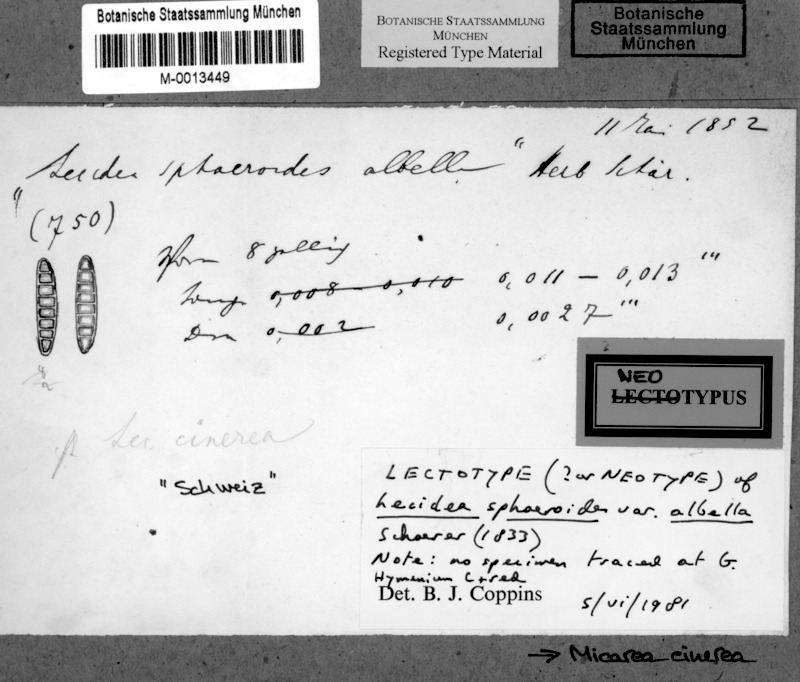 Botanische Staatssammlung München
M-0013449
BOTANISCHE STAATSSAMMLUNG
MÜNCHEN
Registered Type Material
Botanische
Staatssammlung
München
11 Mai 1852
"Lecidea sphaeroides albella" Herb Schär.
(750)
Spor 8 zellig
0,008-0,010 0,011 – 0,013 '''
0,002 0,0027 '''
NEO
LECTOTYPUS
Lec cinerea
"Schweiz"
LECTOTYPE (? or NEOTYPE) of
Lecidea sphaeroides var. albella
Schaerer (1833)
Note: no specimen traced at G.
Hymenium C+red
Det. B. J. Coppins
5/vi/1981
→ Micarea cinerea